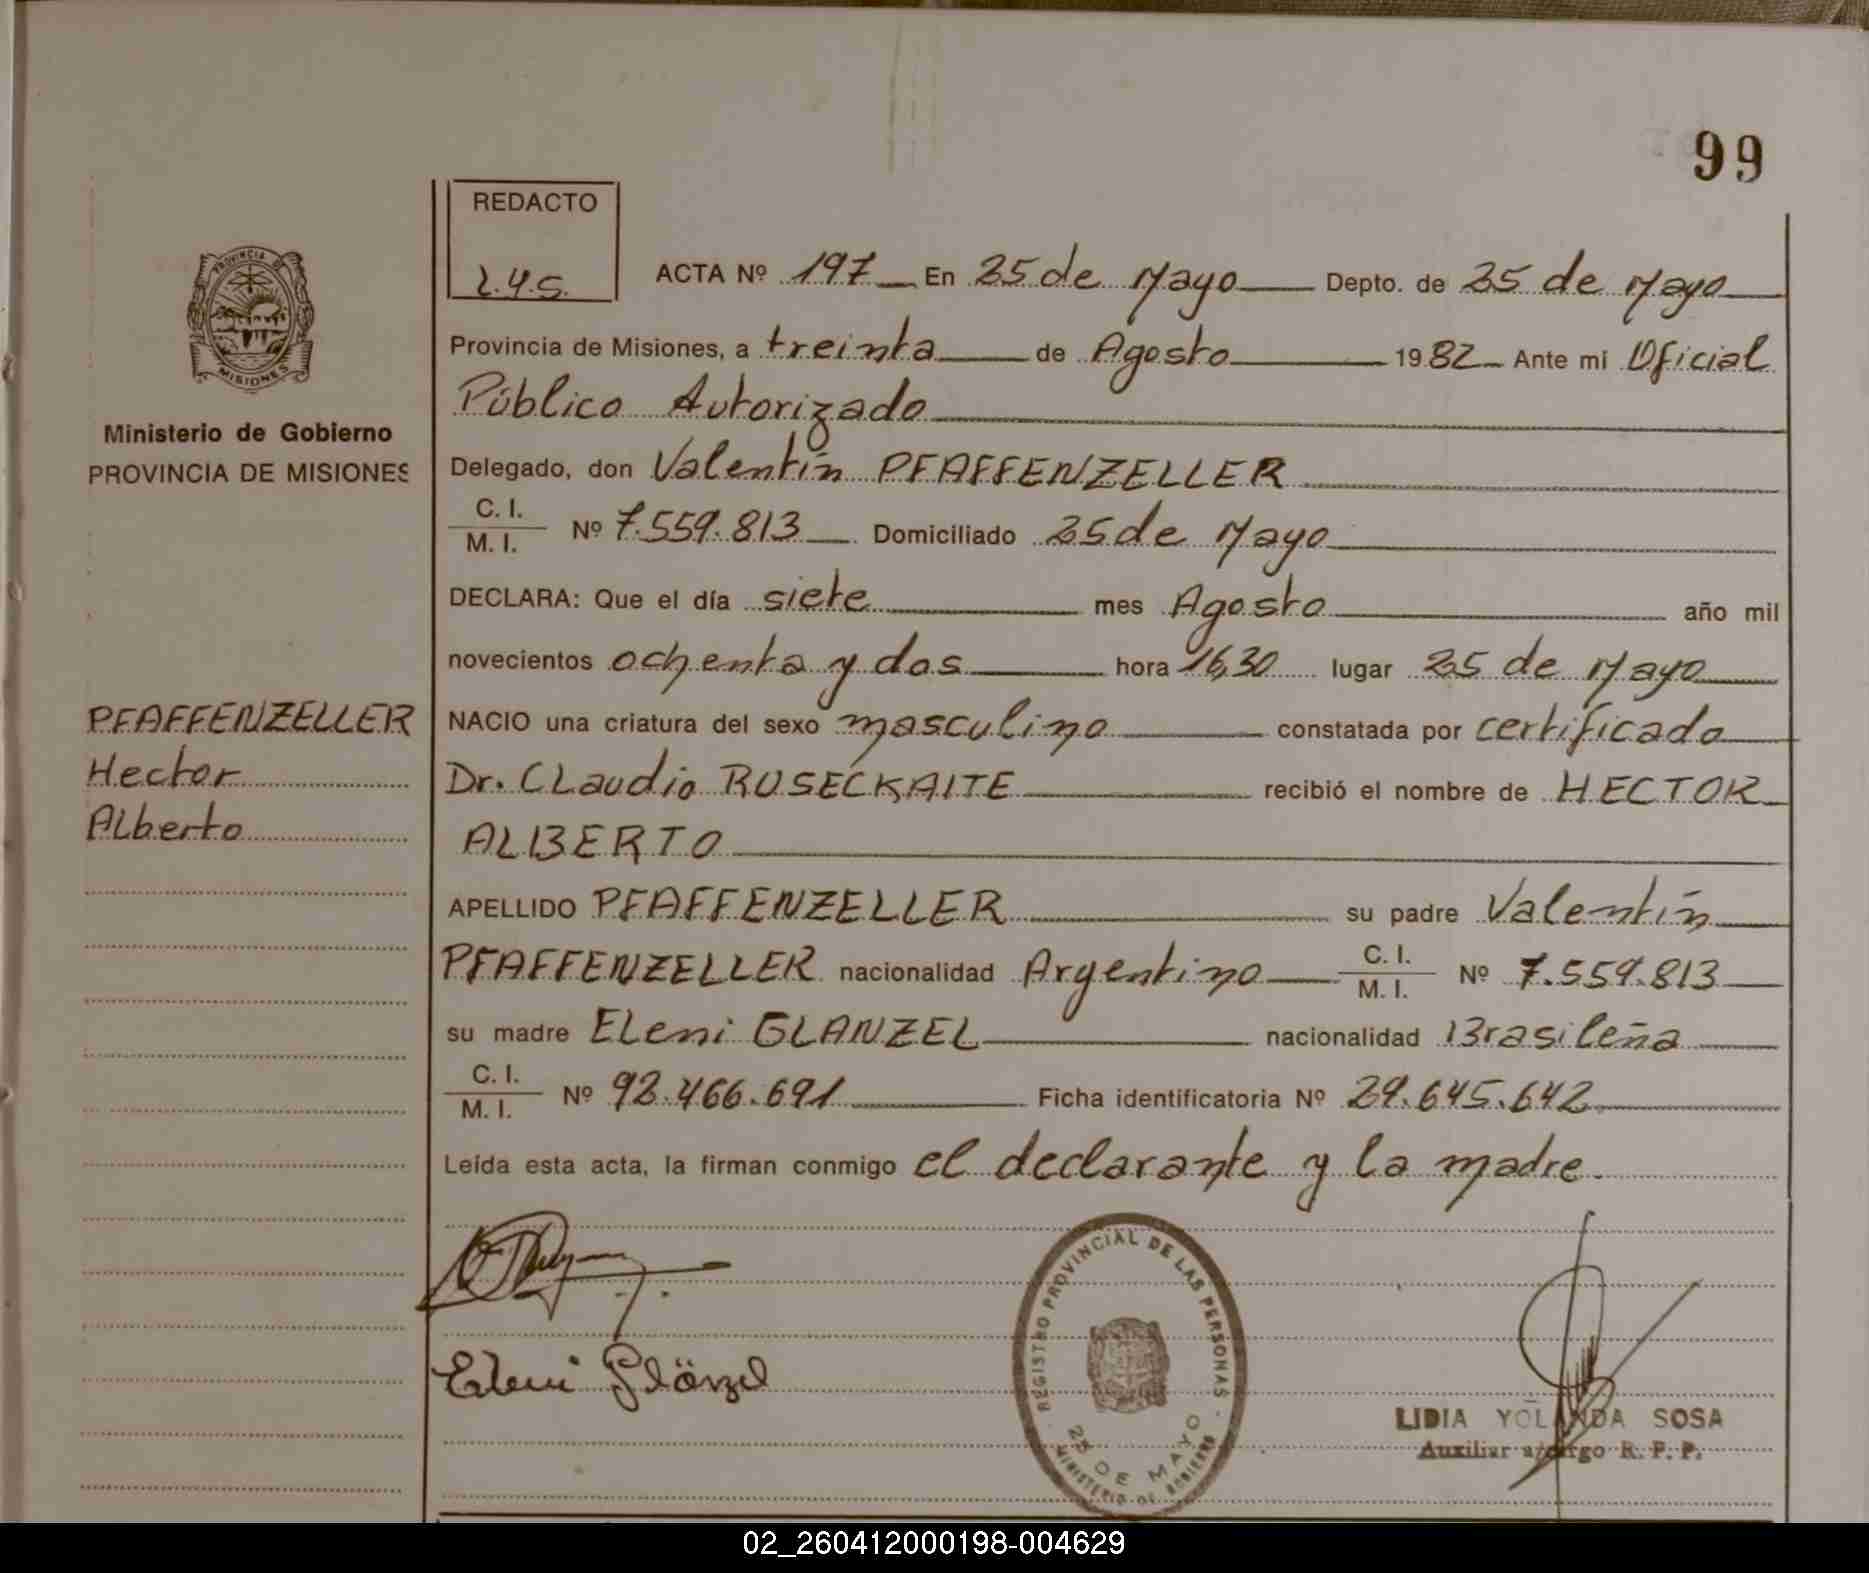 99
REDACTO
L.Y.S.
PROVINCIA DE
MISIONES
Ministerio de Gobierno
PROVINCIA DE MISIONES
PFAFFENZELLER
Hector
Alberto
ACTA Nº 197 En 25 de Mayo Depto. de 25 de Mayo
Provincia de Misiones, a treinta de Agosto 1982 Ante mi Oficial
Público Autorizado
Delegado, don Valentín PFAFFENZELLER
C. I.
M. I. Nº 7.559.813 Domiciliado 25 de Mayo
DECLARA: Que el día siete mes Agosto año mil
novecientos ochenta y dos hora 16,30 lugar 25 de Mayo
NACIO una criatura del sexo masculino constatada por certificado
Dr. CLaudio RUSECKAITE recibió el nombre de HECTOR
ALBERTO
APELLIDO PFAFFENZELLER su padre Valentín
PFAFFENZELLER nacionalidad Argentino C. I. M. I. Nº 7.559.813
su madre ELeni GLANZEL nacionalidad Brasileña
C. I.
M. I. Nº 92.466.691 Ficha identificatoria Nº 29.645.642
Leída esta acta, la firman conmigo el declarante y la madre.
Eleni Glänzel
REGISTRO PROVINCIAL DE LAS PERSONAS
25 DE MAYO
MINISTERIO DE GOBIERNO
LIDIA YOLANDA SOSA
Auxiliar a/cargo R. P. P.
02_260412000198-004629